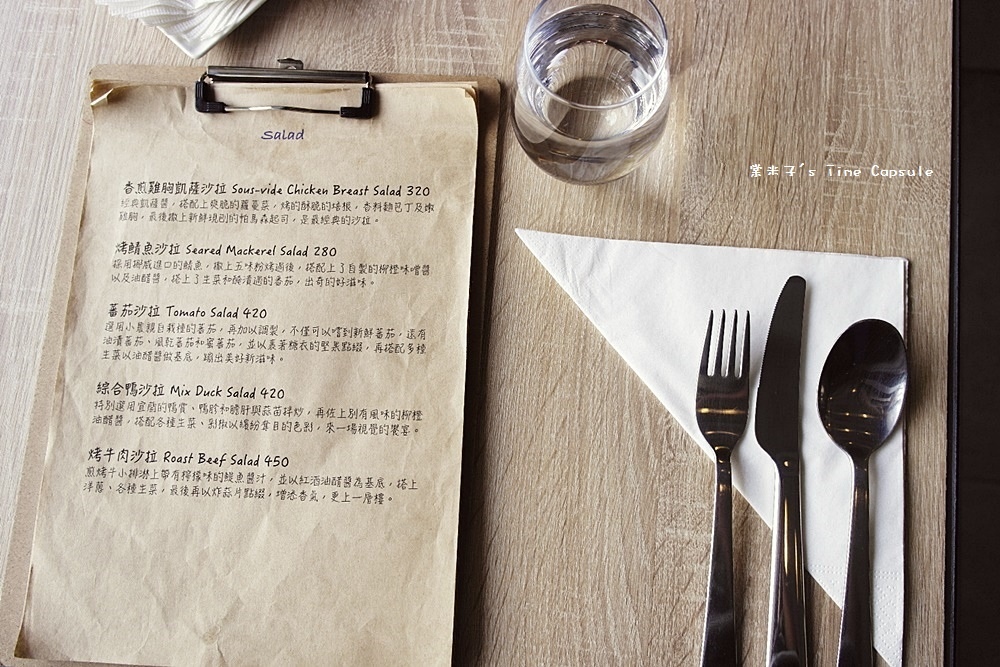 Salad
香煎雞胸凱薩沙拉 Sous-vide Chicken Breast Salad 320
經典凱薩醬，搭配上爽脆的蘿蔓菜，烤的酥脆的培根，香料麵包丁及嫩
雞胸，最後撒上新鮮現刨的帕馬森起司，是最經典的沙拉。
烤鯖魚沙拉 Seared Mackerel Salad 280
採用挪威進口的鯖魚，撒上五味粉烤過後，搭配上了自製的柳橙味噌醬
以及油醋醬，搭上了生菜和醃漬過的番茄，出奇的好滋味。
蕃茄沙拉 Tomato Salad 420
選用小農親自栽種的蕃茄，再加以調製，不僅可以嚐到新鮮蕃茄，還有
油漬蕃茄、風乾蕃茄和蜜蕃茄，並以裹著糖衣的堅果點綴，再搭配多種
生菜以油醋醬做基底，蹦出美好新滋味。
綜合鴨沙拉 Mix Duck Salad 420
特別選用宜蘭的鴨賞、鴨胗和膽肝與蒜苗拌炒，再佐上別有風味的柳橙
油醋醬，搭配各種生菜、彩椒以繽紛奪目的色彩，來一場視覺的饗宴。
烤牛肉沙拉 Roast Beef Salad 450
煎烤牛小排淋上帶有檸檬味的鯷魚醬汁，並以紅酒油醋醬為基底，搭上
洋蔥、各種生菜，最後再以炸蒜片點綴，增添香氣，更上一層樓。
棠米子's Time Capsule